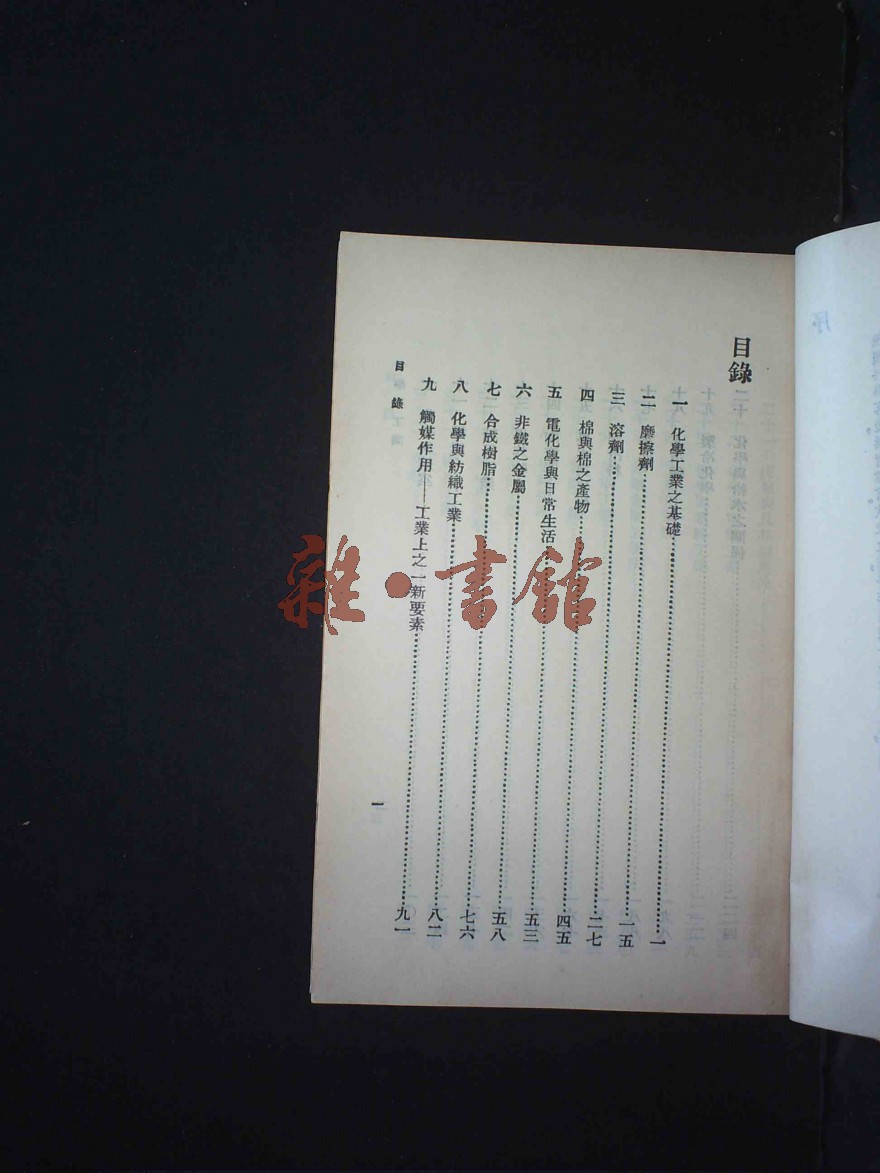 目錄
一 化學工業之基礎……一
二 磨擦劑……一五
三 溶劑……二七
四 棉與棉之產物……四五
五 電化學與日常生活……五三
六 非鐵之金屬……五八
七 合成樹脂……七六
八 化學與紡織工業……八二
九 觸媒作用——工業上之一新要素……九一
目錄
一
序
雜·書館